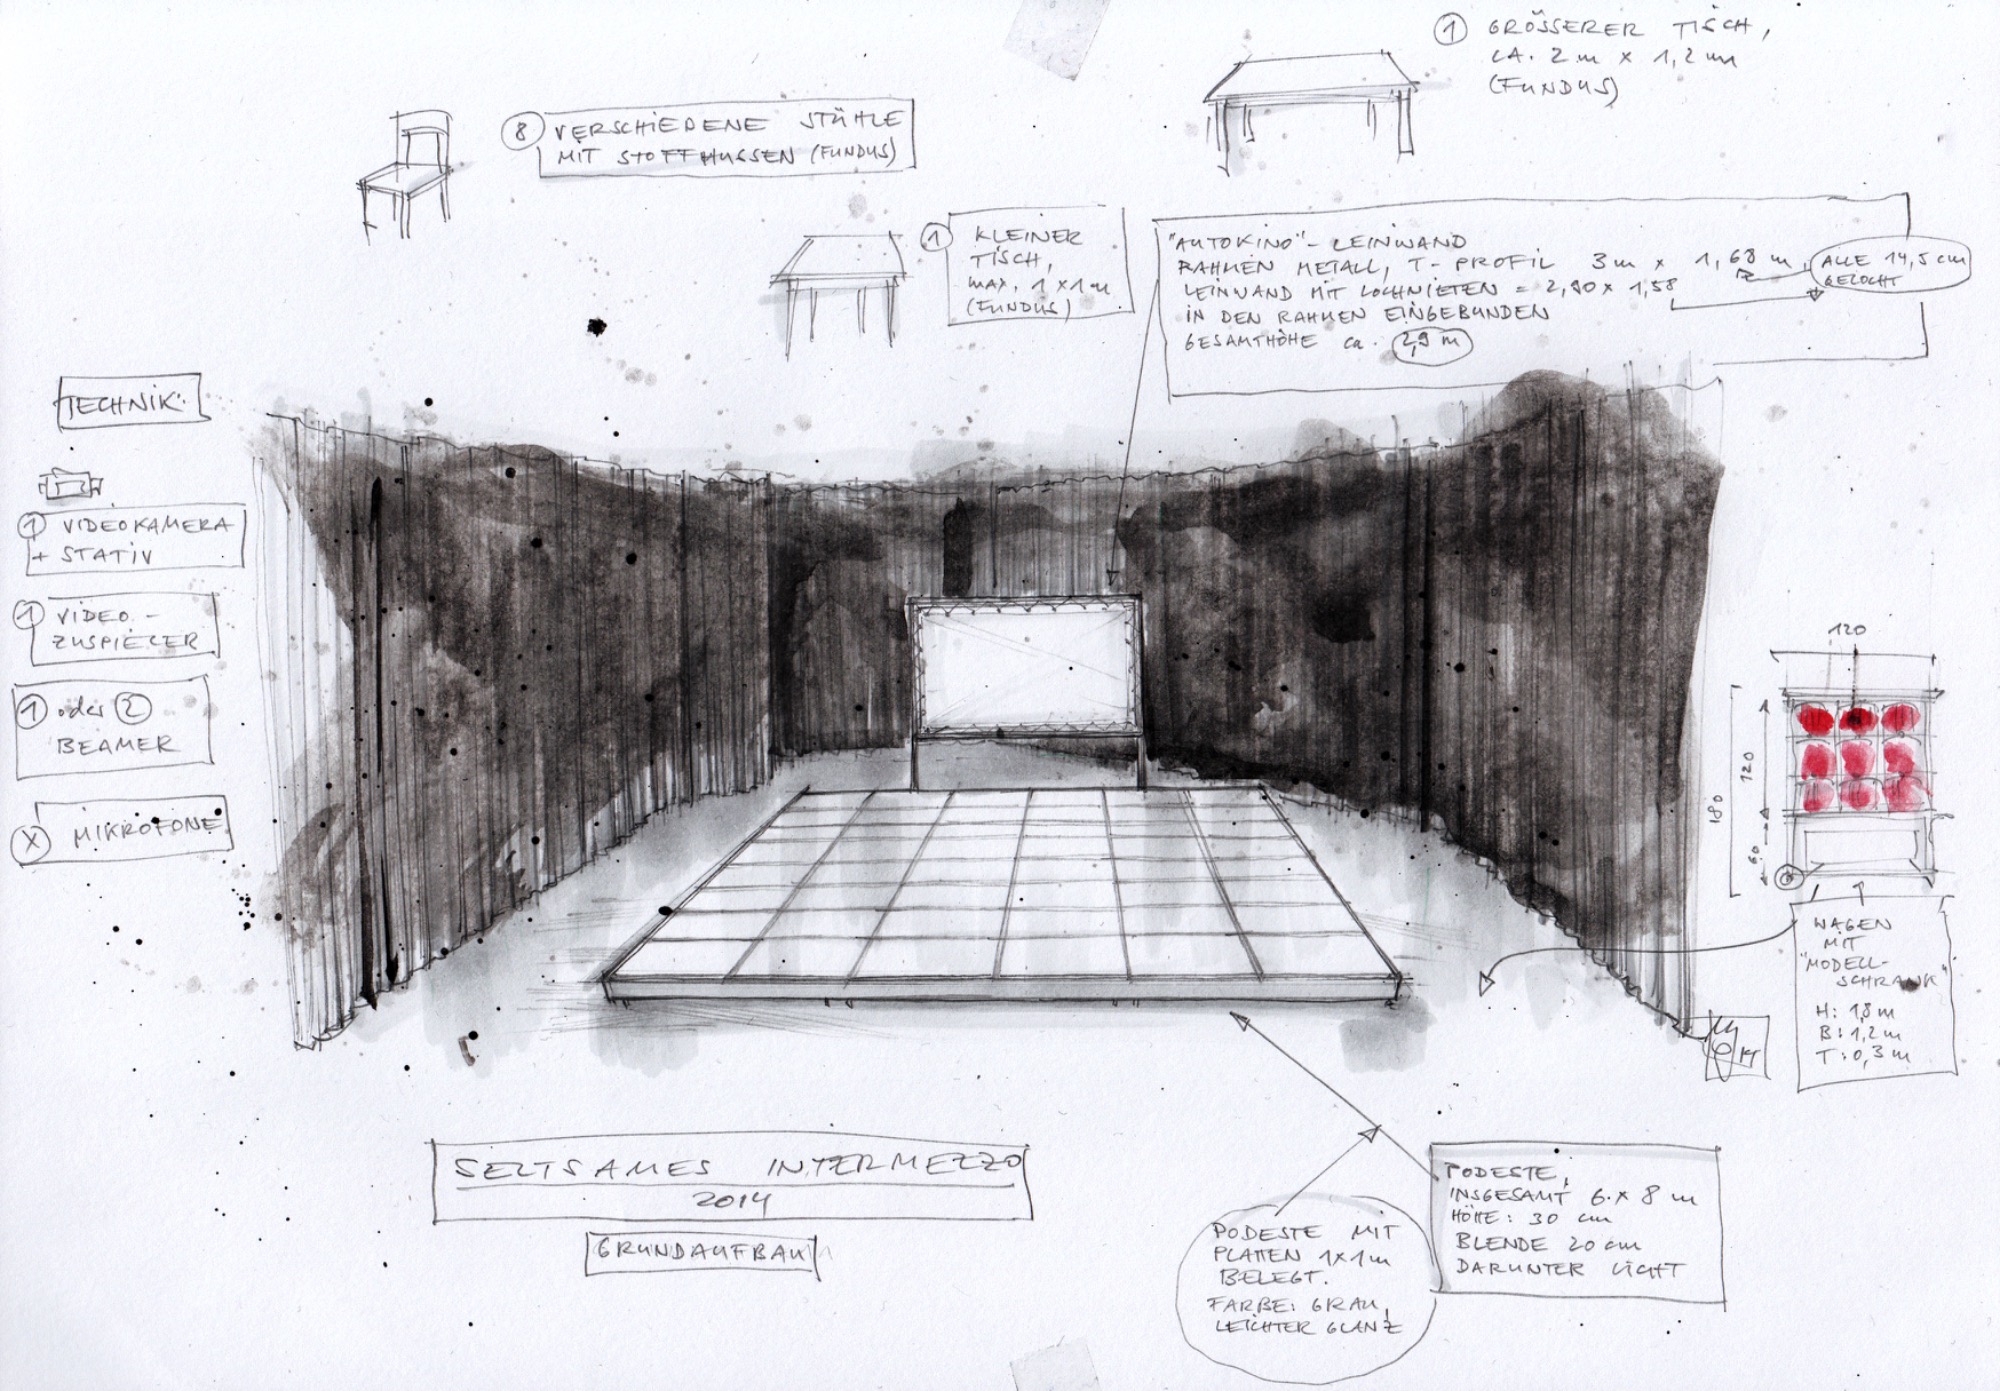 1 GRÖSSERER TISCH,
CA. 2 m x 1,2 m
(FUNDUS)
8 VERSCHIEDENE STÜHLE
MIT STOFFHUSSEN (FUNDUS)
1 KLEINER
TISCH,
MAX. 1 x 1 m
(FUNDUS)
"AUTOKINO"- LEINWAND
RAHMEN METALL, T- PROFIL 3 m x 1,68 m,
LEINWAND MIT LOCHNIETEN = 2,90 x 1,58
IN DEN RAHMEN EINGEBUNDEN
GESAMTHÖHE ca. 2,9 m
ALLE 14,5 cm
GELOCHT
TECHNIK:
1 VIDEOKAMERA
+ STATIV
1 VIDEO-
ZUSPIELER
1 oder 2
BEAMER
X MIKROFONE
120
120
180
60
WAGEN
MIT
"MODELL-
SCHRANK"
H: 1,8 m
B: 1,2 m
T: 0,3 m
SELTSAMES INTERMEZZO
2014
GRUNDAUFBAU
PODESTE,
INSGESAMT 6 x 8 m
HÖHE: 30 cm
BLENDE 20 cm
DARUNTER LICHT
PODESTE MIT
PLATTEN 1x1m
BELEGT.
FARBE: GRAU,
LEICHTER GLANZ